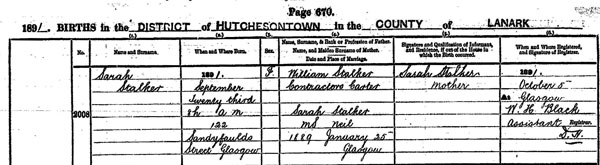 Page 670.
1891. BIRTHS in the DISTRICT of HUTCHESONTOWN in the COUNTY of LANARK
No.
Name and Surname.
When and Where Born.
Sex.
Name, Surname, & Rank or Profession of Father.
Name, and Maiden Surname of Mother.
Date and Place of Marriage.
Signature and Qualification of Informant,
and Residence, if out of the House in
which the Birth occurred.
When and Where Registered,
and Signature of Registrar.
2008
Sarah
Stalker
1891.
September
Twenty third
8h a m
122
Sandyfaulds
Street Glasgow
F.
William Stalker
Contractors Carter
Sarah Stalker
ms Neil
1889 January 25
Glasgow
Sarah Stalker
Mother
1891.
October 5
At Glasgow
W. H. Black
Assistant Registrar.